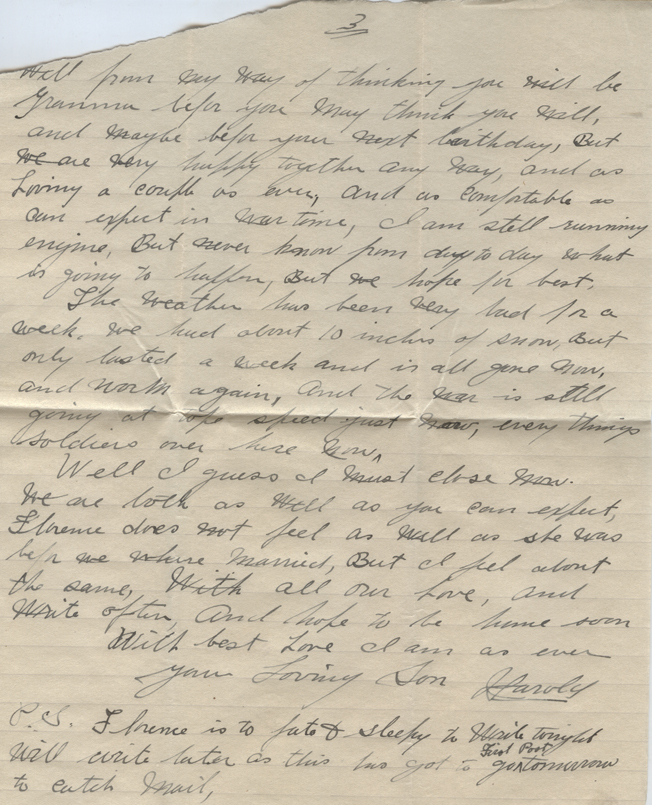 3
Well from my way of thinking you will be
Gramma befor you May think you will,
and maybe befor your next birthday, But
we are very happy together any way, and as
Loving a couple as ever, and as comfortable as
can expect in War time, I am still running
engine, But never know from day to day what
is going to happen, But we hope for best.
The weather has been very bad for a
week. we had about 10 inchs of snow, But
only lasted a week and is all gone now,
and worm again, And the war is still
going at tope speed just now, every things
soldiers over here Now,
Well I guess I must close now.
We are both as well as you can expect,
Florence does not feel as well as she was
befor we where Married, But I feel about
the same, With all our Love, and
Write often, And hope to be home soon
With best Love I am as ever
your Loving Son Harold
P.S. Florence is to & sleepy to Write tonight
Will write later as this has got to go First Post tomorrow
to catch Mail,